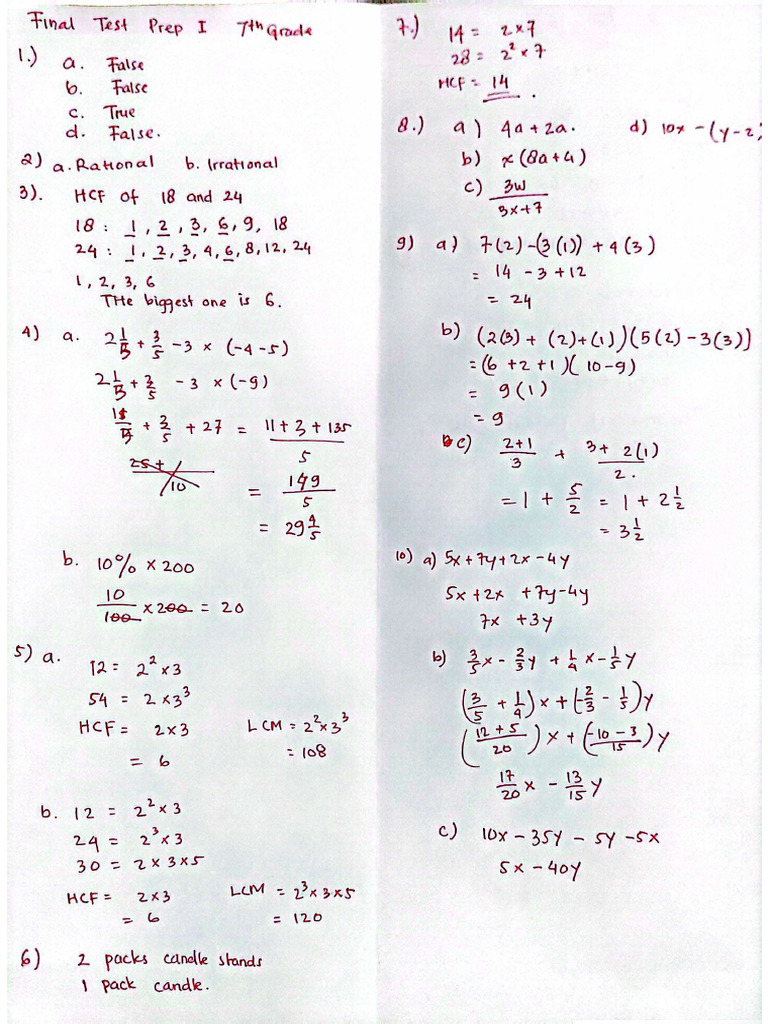 Final Test Prep I 7th Grade
1.) a. False
b. False
c. True
d. False.
2) a. Rational b. Irrational
3). HCF of 18 and 24
18 : 1, 2, 3, 6, 9, 18
24 : 1, 2, 3, 4, 6, 8, 12, 24
1, 2, 3, 6
The biggest one is 6.
4) a. 2 1/5 + 3/5 - 3 × (-4-5)
2 1/5 + 3/5 - 3 × (-9)
11/5 + 3/5 + 27 = 11+3+135 / 5
25+ / 10
= 149/5
= 29 4/5
b. 10% × 200
10/100 × 200 = 20
5) a.
12 = 2² × 3
54 = 2 × 3³
HCF = 2×3 LCM = 2² × 3³
= 6 = 108
b. 12 = 2² × 3
24 = 2³ × 3
30 = 2 × 3 × 5
HCF = 2×3 LCM = 2³ × 3 × 5
= 6 = 120
6) 2 packs candle stands
1 pack candle.
7.) 14 = 2 × 7
28 = 2² × 7
HCF = 14.
8.) a) 4a + 2a. d) 10x - (y-z)
b) x(8a+4)
c) 3w / 3x+7
9) a) 7(2) - (3(1)) + 4(3)
= 14 - 3 + 12
= 24
b) (2(3) + (2)+(1))(5(2) - 3(3))
= (6+2+1)(10-9)
= 9(1)
= 9
c) 2+1 / 3 + 3+2(1) / 2.
= 1 + 5/2 = 1 + 2 1/2
= 3 1/2
10) a) 5x + 7y + 2x - 4y
5x + 2x + 7y - 4y
7x + 3y
b) 3/5 x - 2/3 y + 1/4 x - 1/5 y
(3/5 + 1/4) x + (-2/3 - 1/5) y
(12+5 / 20) x + (-10-3 / 15) y
17/20 x - 13/15 y
c) 10x - 35y - 5y - 5x
5x - 40y